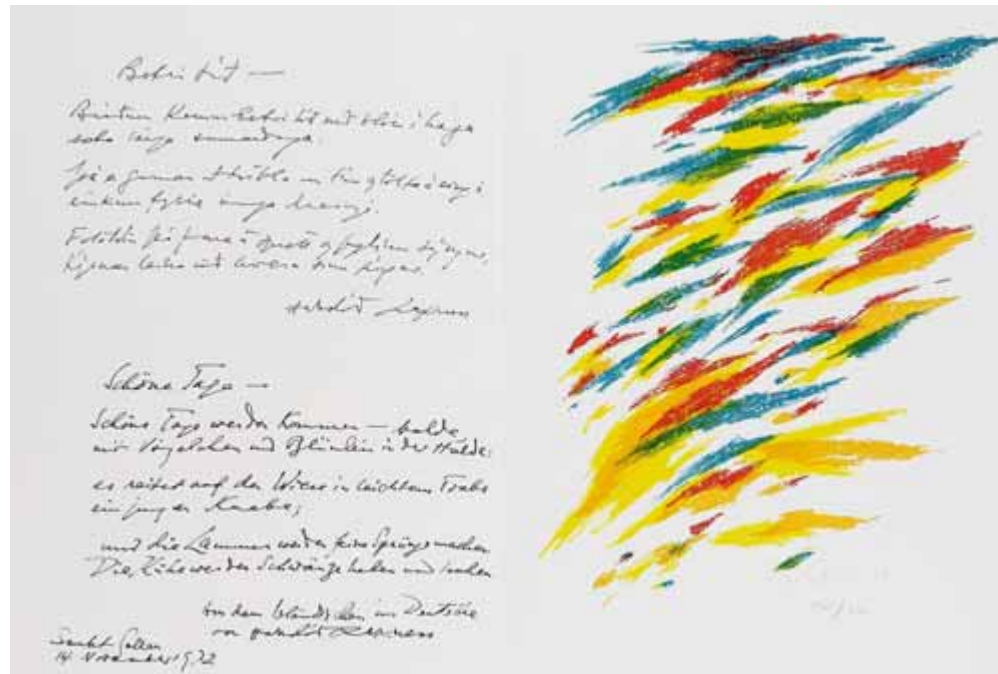 Betri tíð —
Bráðum kemur betri tíð með blóm í haga
sæta langa sumardaga.
Þá er gaman að trítla um tún og tölta á engi
einkum fyrir unga drengi.
Folöldin þá fara á sprett og fuglinn syngur,
kýrnar leika við hvern sinn fingur.
Halldór Laxness
Schöne Tage —
Schöne Tage werden kommen — balde
mit Vögelchen und Blümlein in der Halde;
es reitet auf der Wiese in leichtem Trabe
ein junger Knabe;
und die Lämmer werden feine Sprünge machen
Die Kühe werden Schwänze heben und lachen
Aus dem Isländischen ins Deutsche
von Halldór Laxness
Sankt Gallen
14 November 1972